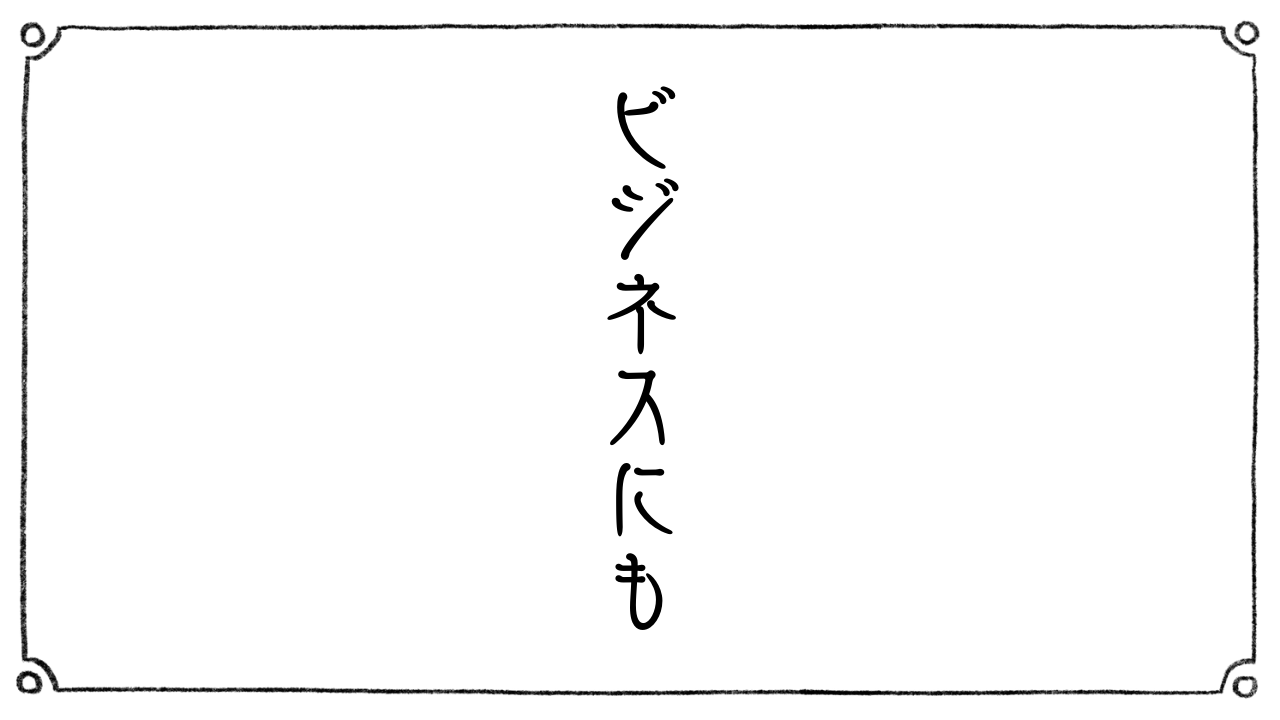 ビジネスにも